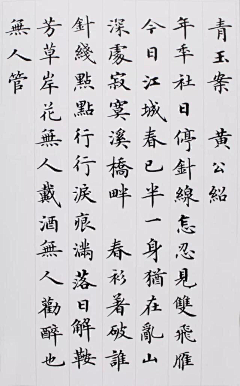 青玉案　黄公紹
年年社日停針線怎忍見雙飛雁
今日江城春已半一身猶在亂山
深處寂寞溪橋畔　春衫著破誰
針綫點點行行淚痕滿落日解鞍
芳草岸花無人戴酒無人勸醉也
無人管